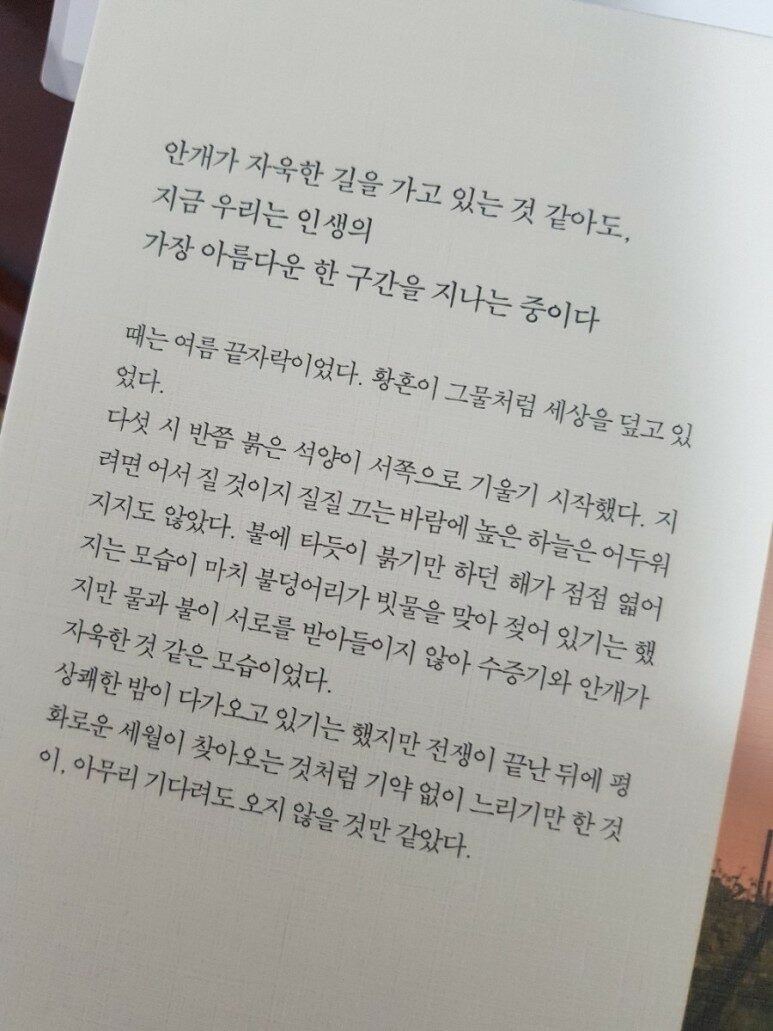 안개가 자욱한 길을 가고 있는 것 같아도,
지금 우리는 인생의
가장 아름다운 한 구간을 지나는 중이다
때는 여름 끝자락이었다. 황혼이 그물처럼 세상을 덮고 있
었다.
다섯 시 반쯤 붉은 석양이 서쪽으로 기울기 시작했다. 지
려면 어서 질 것이지 질질 끄는 바람에 높은 하늘은 어두워
지지도 않았다. 불에 타듯이 붉기만 하던 해가 점점 엷어
지는 모습이 마치 불덩어리가 빗물을 맞아 젖어 있기는 했
지만 물과 불이 서로를 받아들이지 않아 수증기와 안개가
자욱한 것 같은 모습이었다.
상쾌한 밤이 다가오고 있기는 했지만 전쟁이 끝난 뒤에 평
화로운 세월이 찾아오는 것처럼 기약 없이 느리기만 한 것
이, 아무리 기다려도 오지 않을 것만 같았다.